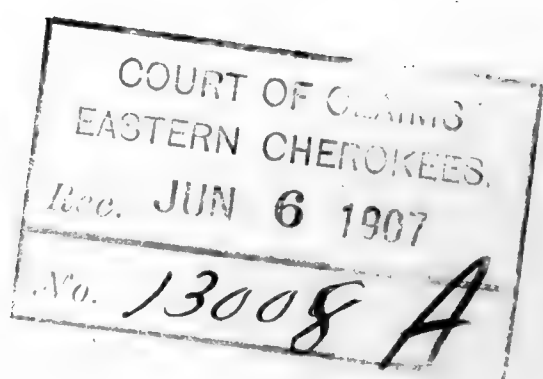 COURT OF CLAIMS
EASTERN CHEROKEES.
Rec. JUN 6 1907
No. 13008 A